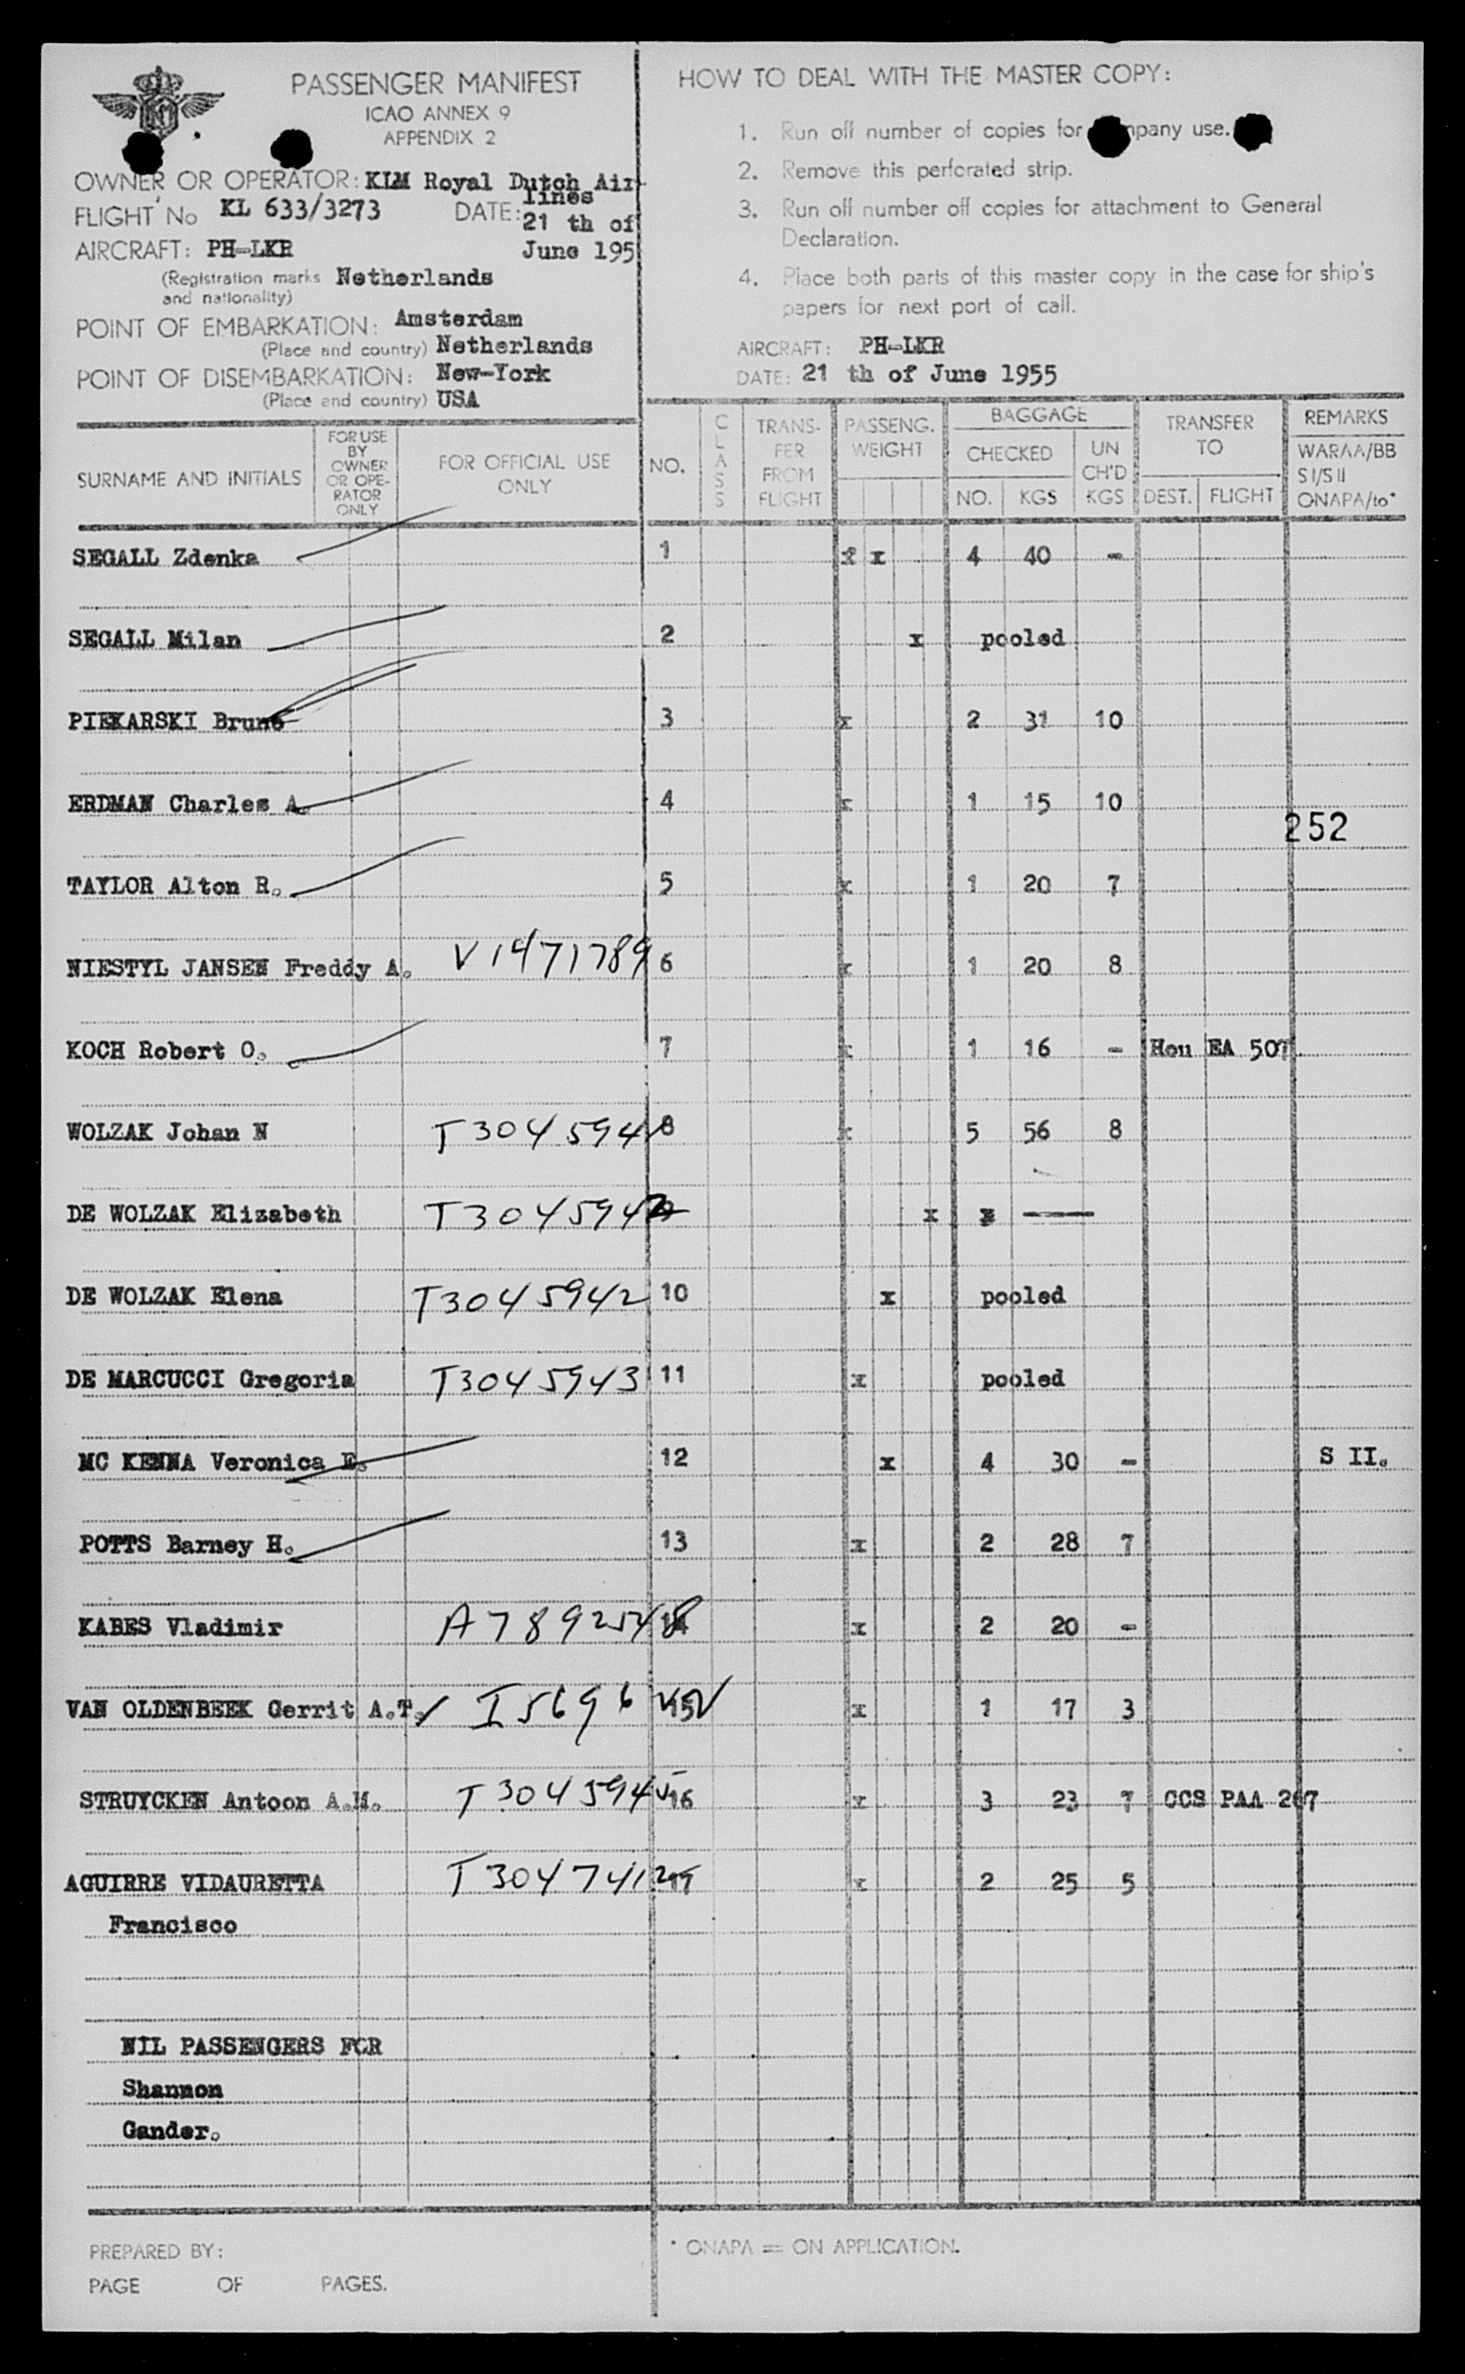 PASSENGER MANIFEST
ICAO ANNEX 9
APPENDIX 2
OWNER OR OPERATOR: KLM Royal Dutch Air-
lines
FLIGHT No KL 633/3273 DATE: 21 th of
AIRCRAFT: PH-LKR June 195
(Registration marks Netherlands
and nationality)
POINT OF EMBARKATION: Amsterdam
(Place and country) Netherlands
POINT OF DISEMBARKATION: New-York
(Place and country) USA
HOW TO DEAL WITH THE MASTER COPY:
1. Run off number of copies for company use.
2. Remove this perforated strip.
3. Run off number off copies for attachment to General
Declaration.
4. Place both parts of this master copy in the case for ship's
papers for next port of call.
AIRCRAFT: PH-LKR
DATE: 21 th of June 1955
SURNAME AND INITIALS FOR USE BY OWNER OR OPE- RATOR ONLY FOR OFFICIAL USE ONLY NO. CLASS TRANS- FER FROM FLIGHT PASSENG. WEIGHT BAGGAGE CHECKED NO. KGS UN CH'D KGS TRANSFER TO DEST. FLIGHT REMARKS WARAA/BB S I/S II ONAPA/to*
SEGALL Zdenka 1 f x 4 40 -
SEGALL Milan 2 x pooled
PIEKARSKI Bruno 3 x 2 31 10
ERDMAN Charles A. 4 x 1 15 10
252
TAYLOR Alton R. 5 x 1 20 7
NIESTYL JANSEN Freddy A. V1471789 6 x 1 20 8
KOCH Robert O. 7 x 1 16 - Hou EA 507
WOLZAK Johan N T3045941 8 x 5 56 8
DE WOLZAK Elizabeth x
DE WOLZAK Elena T3045942 10 x pooled
DE MARCUCCI Gregoria T3045943 11 x pooled
MC KENNA Veronica E. 12 x 4 30 - S II.
POTTS Barney H. 13 x 2 28 7
KABES Vladimir A7892548 14 x 2 20 -
VAN OLDENBEEK Gerrit A.T. I5696 15 x 1 17 3
STRUYCKEN Antoon A.M. T3045945 16 x 3 23 7 CCS PAA 267
AGUIRRE VIDAURETTA T3047412 17 x 2 25 5
Francisco
NIL PASSENGERS FOR
Shannon
Gander.
PREPARED BY:
PAGE OF PAGES.
* ONAPA = ON APPLICATION.